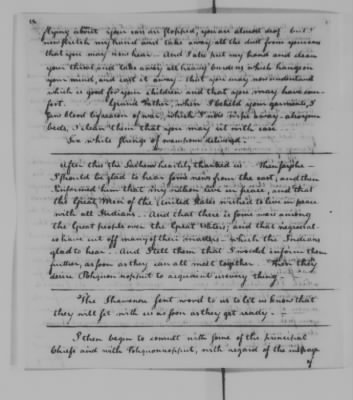 flying about your ears are stopped, you are almost deaf. but I
now stretch my hand and take away all the dust from your ears
that you may now hear. And I also put my hand and clean
your throat and take away all heavy burdens which hangs on
your mind, and cast it away. that you may now understand
which is good for your children and that you may have com-
fort. Grand Father, when I behold your garments, I
see blood by reason of war, which I now wipe away. also your
beds, I clean them that you may sit with ease
Six white strings of wampum delivered.
After this the Indians heartily thanked us. Then people
I should be glad to hear some news from the east, and then
Informed him that my nation live in peace, and that
the Great Men of the United States wished to live in peace
with all Indians. And that there is some wars among
the Great people over the Great Waters, and that
so have cut off many of their masters. which the Indians
glad to hear. And I tell them that I would inform them
further, as soon as they can all meet together. Then they
desire Pohquon noppeet to acquaint us every thing.
The Shawnese sent word to us to let us know that
they will set with us as soon as they get ready.
I then begin to consult with some of the principal
Chiefs and with Pohquonnoppeet, with regard of the message
of